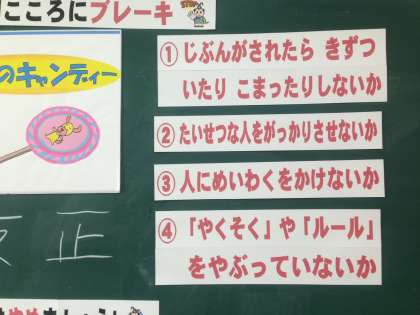 こころにブレーキ
のキャンディー
① じぶんがされたら きずつ
いたり こまったりしないか
② たいせつな人をがっかりさせないか
③ 人にめいわくをかけないか
④ 「やくそく」や「ルール」
をやぶっていないか
正